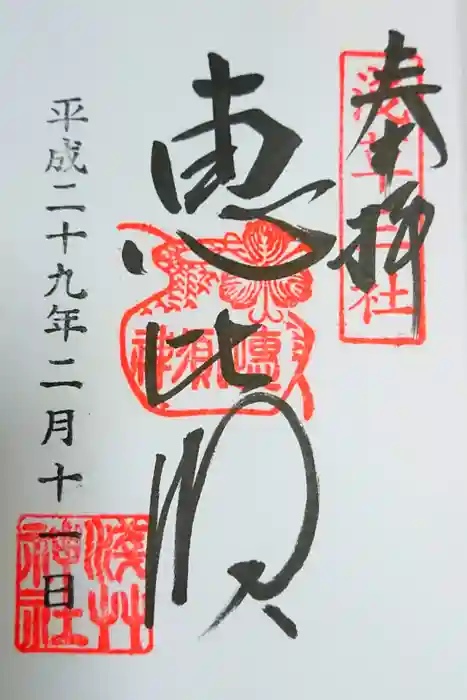 奉拝
浅草神社
恵比須
平成二十九年二月十一日
淺艸
神社